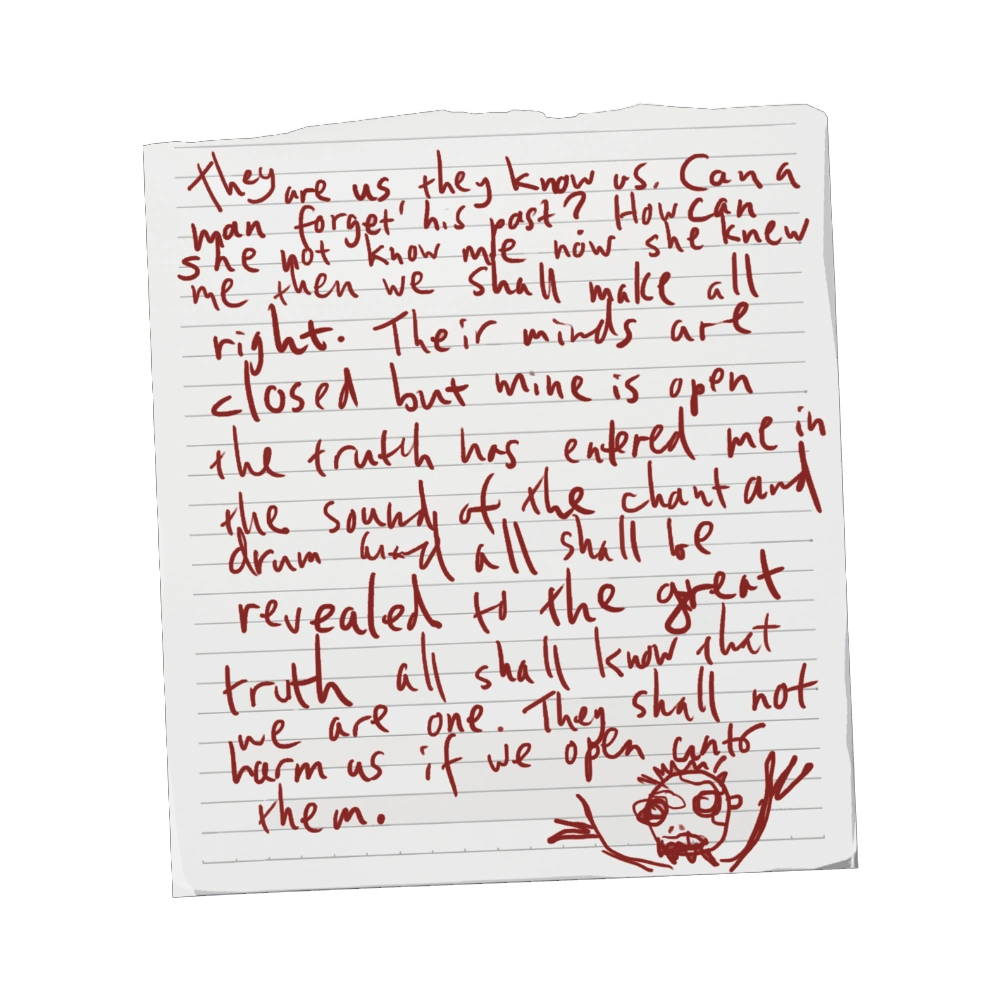 They are us, they know us. Can a
man forget his past? How can
she not know me now she knew
me then we shall make all
right. Their minds are
closed but mine is open
the truth has entered me in
the sound of the chant and
drum and all shall be
revealed to the great
truth all shall know that
we are one. They shall not
harm us if we open unto
them.